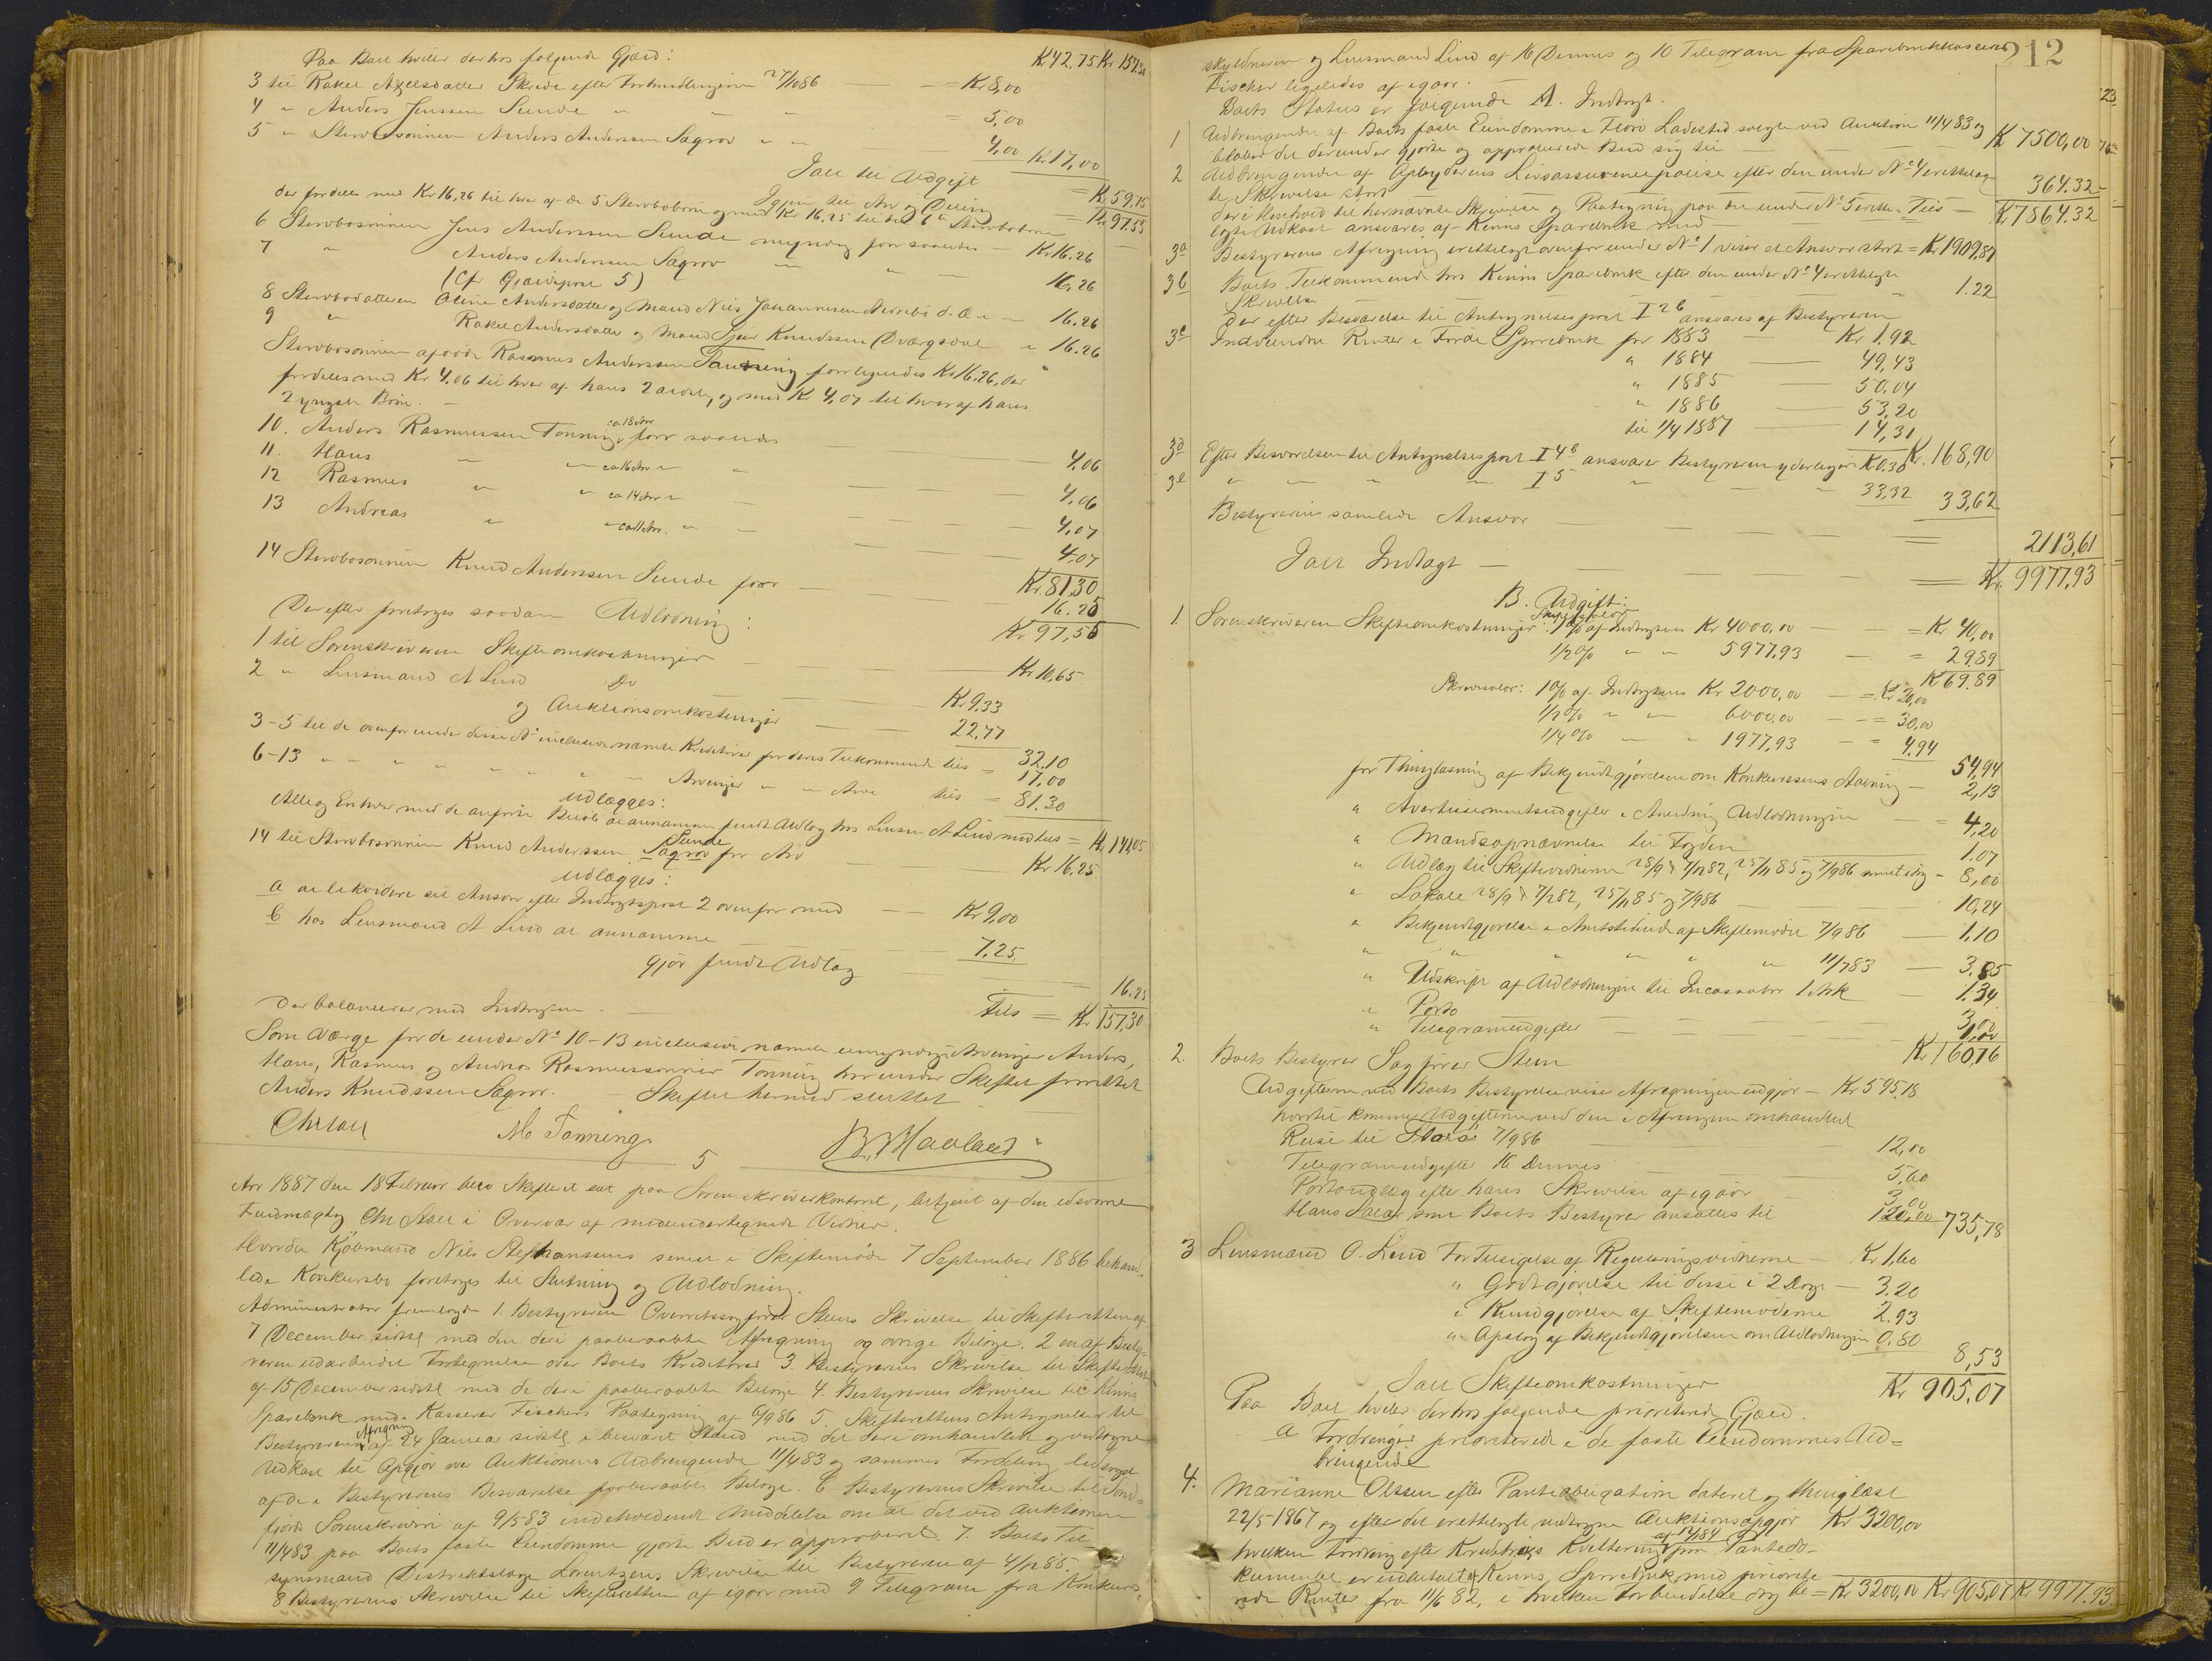 Paa Boet hviler derhos følgende Gjæld: Kr 42.75 Kr 157.30
3 til Rakel Axelsdatter Skrede efter Forhandlingerne 27/1086 — = Kr 8,00
4 " Anders Jenssen Sunde " = 5,00
5 " Stervbosønnen Anders Anderssen Sagrov " " 4,00 Kr. 17,00
Ialt til Udgift = Kr 59,75
Igjen til Arv og Deling = Kr. 97.55
der fordeles med Kr 16,26 til hver af de 5 Stervbobørn og med Kr 16.25 til det 6te Stervbobarn
6 Stervbosønnen Jens Anderssen Sunde myndig faar saaledes — Kr 16.26
7 " Anders Anderssen Sagrov " " — 16,26
(Cfr Gjældspost 5)
8 Stervbodatteren Oline Andersdatter og Mand Nils Johannesen d. Æ " — 16.26
9 " Rakel Andersdatter og Mand Knudssen Dvergsdal " 16.26
Stervbosønnen afdøde Rasmus Anderssen Tonning forlegendes Kr 16.26, der
fordeles med Kr 4.06 til hver af hans 2 ældste, og med Kr 4,07 til hver af hans
2 yngste Børn. —
10. Anders Rasmussen Tonning, ca 18 Aar faar saaledes — 4,06
11. Hans " " ca 16 Aar " " — 4,06
12 Rasmus " " ca 14 Aar " — 4,07
13 Andreas " " ca 11 Aar. " — 4.07
Kr 81,30
14 Stervbosønnen Knud Anderssen Sunde faar — 16.25
Kr 97,55
Derefter foretoges saadan Udlodning:
1 til Sorenskriveren Skifteomkostninger — Kr 10,65
2 " Lensmand A Lind Do — Kr 9.33
og Auktionsomkostninger — 22,77
32.10
3-5 til de ovenfor under disse No inclusive nævnte Kreditorer for deres Tilkommende tils = 17,00
6-13 " " " " " " " Arvinger " " Arv tils = 81.30
Udlægges:
Alle og Enhver med de anførte Beløb at annamme fuldt Udlæg hos Lensm A Lind med tils = Kr 141,05
14 til Stervbosønnen Knud Anderssen Sagrov Sunde for Arv — Kr 16,25
Udlægges:
a at likvidere sit Ansvar efter Indtægtspost 2 ovenfor med — Kr 9,00
b hos Lensmand A Lind at annamme — 7.25
gjør fuldt Udlæg — 16.25
der balancerer med Indtægten. — Tils = Kr 157,30
Som Værge for de under No 10-13 inclusive nævnte umyndige Arvinger Anders,
Hans, Rasmus og Andreas Rasmussønner Tonning herunder Skiftet forrettet
Anders Knudssen Sagrov. — Skiftet hermed sluttet
Chr Lall M Tonning B. Haaland
5
Aar 1887 den 18 Februar blev Skifteret sat paa Sorenskriverkontoret, betjent af den edsvorne
Fuldmægtig Chr Lall i Overvær af medundertegnede Vidner.
Hvorda Kjøbmand Nils Stephanssens senest i Skiftemøde 7 September 1886 behand=
lede Konkursbo foretoges til Slutning og Udlodning.
Administrator fremlagde 1. Bestyreren Overretssagfører Steens Skrivelse til Skifteretten af
7 December sidstl med den deri paaberaabte Afregning og øvrige Bilage. 2 en af Besty=
reren udarbeidet Fortegnelse over Boets Kreditorer 3. Bestyrerens Skrivelse til Skifteretten
af 15 December sidstl med de deri paaberaabte Bilage. 4. Bestyrerens Skrivelse til Kinns
Sparebank med Kasserer Fischers Paategning af 6/986 5. Skifterettens Antegnelser til
Bestyrerens Afregning af 24 Januar sidstl i besvaret Stand med det deri omhandlede og vedtagne
Udkast til Opgjør over Auktionens Udbringende 11/483 og sammes Fordeling ledsaget
af de i Bestyrerens Besvarelse paaberaabte Bilage. 6 Bestyrerens Skrivelse til Sønd=
fjords Sorenskriveri af 9/583 indeholdende Meddelelse om at det ved Auktionen
11/483 paa Boets faste Eiendomme gjorte Bud er approberet. 7. Boets Til
synsmand Distriktslæge Lorentzens Skrivelse til Bestyreren af 4/1285.
8 Bestyrerens Skrivelse til Skifteretten af igaar med 9 Telegram fra Konkurs
212
skyldneren og Lensmand Lind af 16 Dennes og 10 Telegram fra Sparebankkasserer
Fischer ligeledes af igaar.
Boets Status er følgende A. Indtægt.
1 Udbringende af Boets faste Eiendomme i Florø Ladested solgte ved Auktion 11/483 og
beløber det derunder gjorte og approberede Bud sig til — Kr 7500,00
2 Udbringende af Livsassurancepolise efter den under No 4 fremlag
te Skrivelse stort — 364.32
der i Henhold til hernævnte Skrivelse og Paategning paa det under No 5 Tils — Kr 7864.32
lagte Udkast ansvares af Kinns Sparebank med —
3a Bestyrerens Afregning fremlagt ovenfor under No 1 viser et Ansvar stort = Kr 1909,87
3b Boets Tilkommende hos Kinns Sparebank efter den under No 4 fremlagte
Skrivelse — 1.22
der efter Besvarelse til Antegnelsespost I 2b ansvares af Bestyreren
3c Indvundne Renter i Førde Sparebank for 1883 — Kr 1.92
" 1884 — 49,43
" 1885 — 50,04
" 1886 — 53,20
til 1/4 1887 — 14,31
Kr. 168,90
3d Efter Besvarelsen til Antegnelsespost I 4b ansvarer Bestyreren yderligere Kr 0.30
3e " " " " I 5 " " " 33,32 33,62
Bestyrerens samlede Ansvar — 2113,61
Ialt Indtægt — Kr. 9977,93
B. Udgift:
1. Sorenskriveren Skifteomkostninger: Skiftesalær 1% af Indtægtens Kr 4000,00 — = Kr 40,00
1/2% " " 5977,93 — = 29.89
Kr 69.89
Skriversalær: 1% af Indtægtens Kr 2000,00 — = Kr 20,00
1/2% " " 6000,00 — = 30,00
1/4% " " 1977,93 — = 4.94
54,94
for Thinglæsning af Bekjendtgjørelsen om Konkursens Aabning — 2,13
" Avertissementsudgifter i Anledning Udlodningen — = 4,20
" Mandsopnævnelse til Fogden — 1.07
" Udlæg til Skiftevidnerne 28/9 & 7/1282, 25/1185 og 7/986 — 8,00
" Lokale 28/9 & 7/1282, 25/1185 og 7/986 — 10,24
" Bekjendtgjørelse i Amtstidende af Skiftemøde 7/986 — 1.10
" " " " " " 11/783 — 3.85
" Udskrift af Udlodningen til Incassator 1 Ark — 1.34
" Porto — 3,00
" Telegramudgifter — 1,00
Kr 160,76
2. Boets Bestyrer Sagfører Steen
Udgifterne ved Boets Bestyrelse vise Afregningen udgjør — Kr 595,18
hvortil kommer Udgifterne ved den i Afregningen omhandlede
Reise til Florø 7/986 — 12,00
Telegramudgifter 16 Dennes — 5,60
Portoudlæg efter hans Skrivelse af igaar — 3,00
Hans Salær som Boets Bestyrer ansættes til 120,00 735,78
3 Lensmand O. Lind For Tilsigelse af Registreringsvidnerne — Kr 1,60
" Godtgjørelse til disse i 2 Dage — 3.20
" Kundgjørelse af Skiftemøderne 2.93
" Opslag af Bekjendtgjørelsen om Udlodningen 0.80
8,53
Ialt Skifteomkostninger Kr 905,07
Paa Boet hviler derhos følgende prioriterede Gjæld.
a Fordringer prioriterede i de faste Eiendommes Ud=
bringende
4. Marianne Olssen efter Pantobligation dateret og thinglæst
22/5 1867 og efter det fremlagte vedtagne Auktionsopgjør Kr 3200,00
hvilken Fordring efter Kreditors Kvittering af 12/184 paa Pantedo=
kumentet er indbetalt af Kinns Sparebank med priorite
rede Renter fra 11/6 82, i hvilken Forbindelse dog be = Kr 3200,00 Kr 905,07 Kr 9977.93.